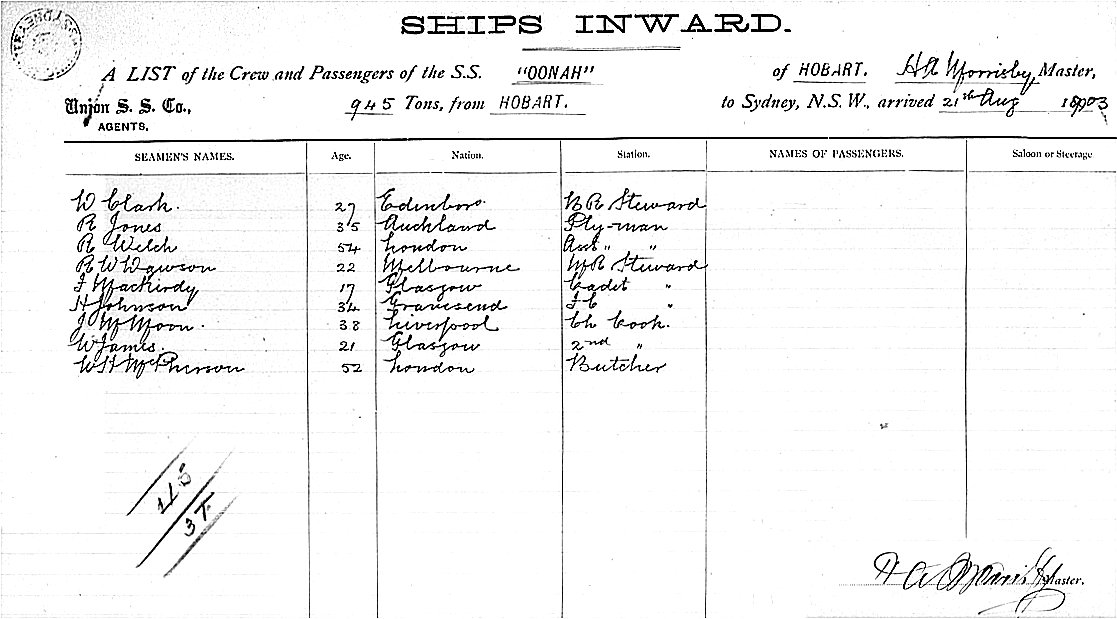 SHIPS INWARD.
A LIST of the Crew and Passengers of the S.S. "OONAH" of HOBART. HA Morrisby, Master,
Union S. S. Co., 945 Tons, from HOBART. to Sydney, N.S.W., arrived 21st Aug 1903
AGENTS.
SEAMEN'S NAMES. Age. Nation. Station. NAMES OF PASSENGERS. Saloon or Steerage
W Clark. 27 Edinboro. B R Steward
R Jones 35 Auckland Ply-man
R Welch 54 London Asst " "
R W Dawson 22 Melbourne M R Steward
J Mackirdy 17 Glasgow Cadet "
H Johnson 34 Gravesend F C "
J M Moon. 38 Liverpool Ch Cook.
W James. 21 Glasgow 2nd "
W H McPherson 52 London Butcher
11 S
3 T
H A Morrisby Master.